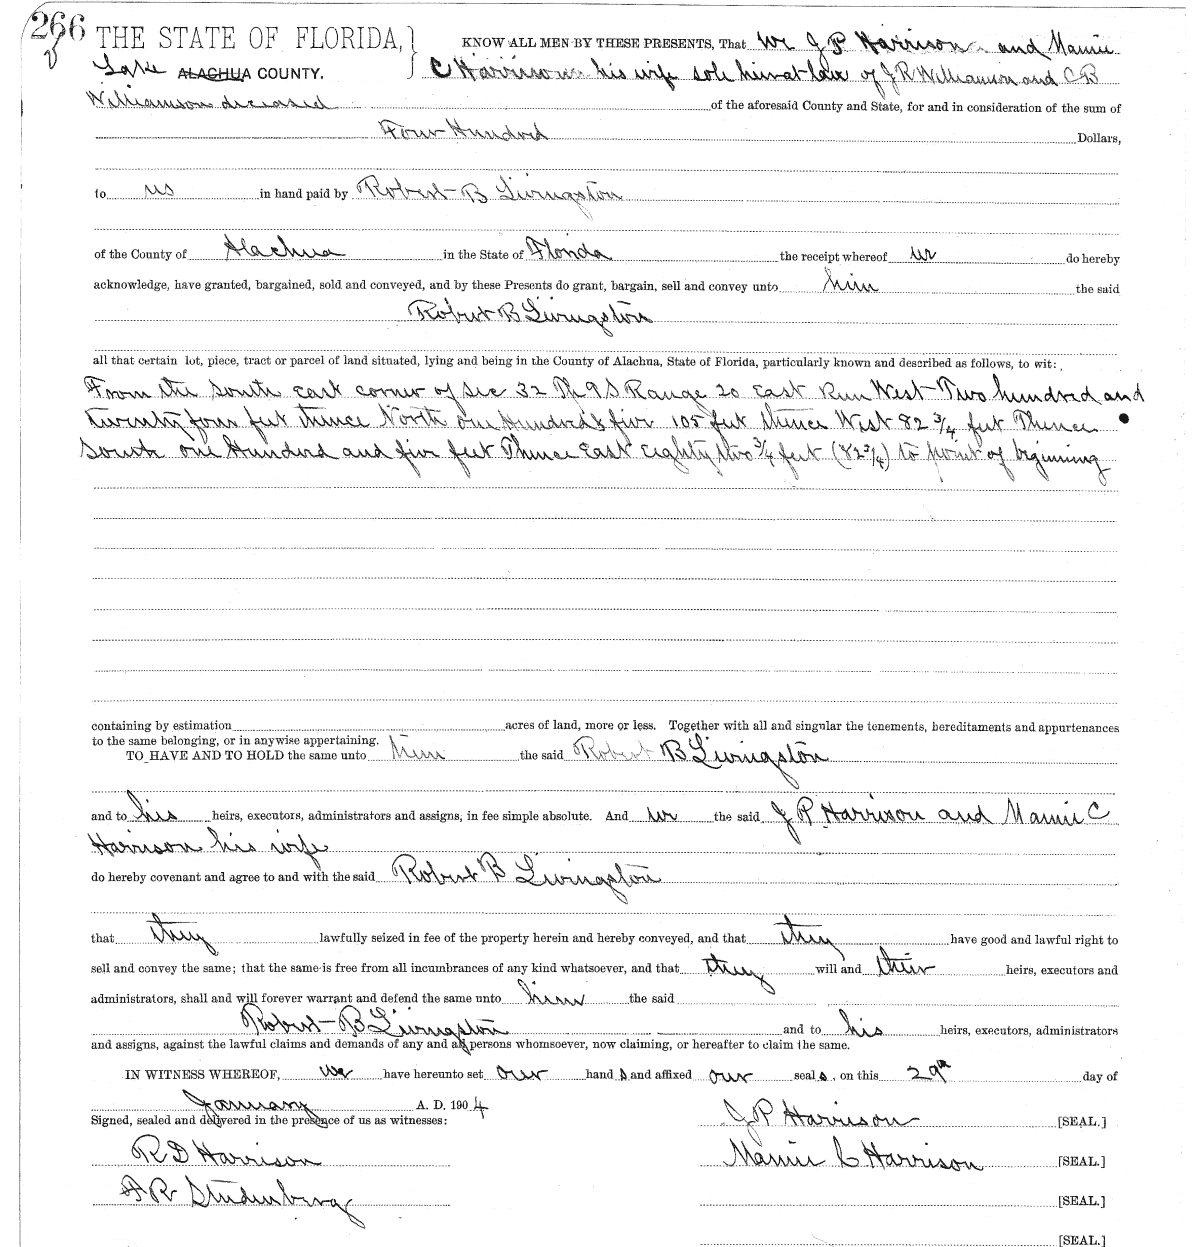 266
THE STATE OF FLORIDA, } KNOW ALL MEN BY THESE PRESENTS, That We J P Harrison and Mamie
Lake ALACHUA COUNTY. C Harrison his wife sole heirs at law of J R Williamson and C B
Williamson deceased of the aforesaid County and State, for and in consideration of the sum of
Four Hundred Dollars,
to us in hand paid by Robert B Livingston
of the County of Alachua in the State of Florida the receipt whereof we do hereby
acknowledge, have granted, bargained, sold and conveyed, and by these Presents do grant, bargain, sell and convey unto him the said
Robert B Livingston
all that certain lot, piece, tract or parcel of land situated, lying and being in the County of Alachua, State of Florida, particularly known and described as follows, to wit:
From the South east corner of Sec 32 Tp 9 S Range 20 East Run West Two hundred and
twenty four feet thence North one Hundred & five 105 feet thence West 82 3/4 feet Thence
South one Hundred and five feet Thence East Eighty two 3/4 feet (82 3/4) to point of beginning
containing by estimation acres of land, more or less. Together with all and singular the tenements, hereditaments and appurtenances
to the same belonging, or in anywise appertaining.
TO HAVE AND TO HOLD the same unto him the said Robert B Livingston
and to his heirs, executors, administrators and assigns, in fee simple absolute. And we the said J P Harrison and Mamie C
Harrison his wife
do hereby covenant and agree to and with the said Robert B Livingston
that they lawfully seized in fee of the property herein and hereby conveyed, and that they have good and lawful right to
sell and convey the same; that the same is free from all incumbrances of any kind whatsoever, and that they will and their heirs, executors and
administrators, shall and will forever warrant and defend the same unto him the said
Robert B Livingston and to his heirs, executors, administrators
and assigns, against the lawful claims and demands of any and all persons whomsoever, now claiming, or hereafter to claim the same.
IN WITNESS WHEREOF, we have hereunto set our hand s and affix our seal s, on this 29th day of
January A. D. 1904
Signed, sealed and delivered in the presence of us as witnesses: J P Harrison [SEAL.]
R D Harrison Mamie C Harrison [SEAL.]
A R Studenberg [SEAL.]
[SEAL.]